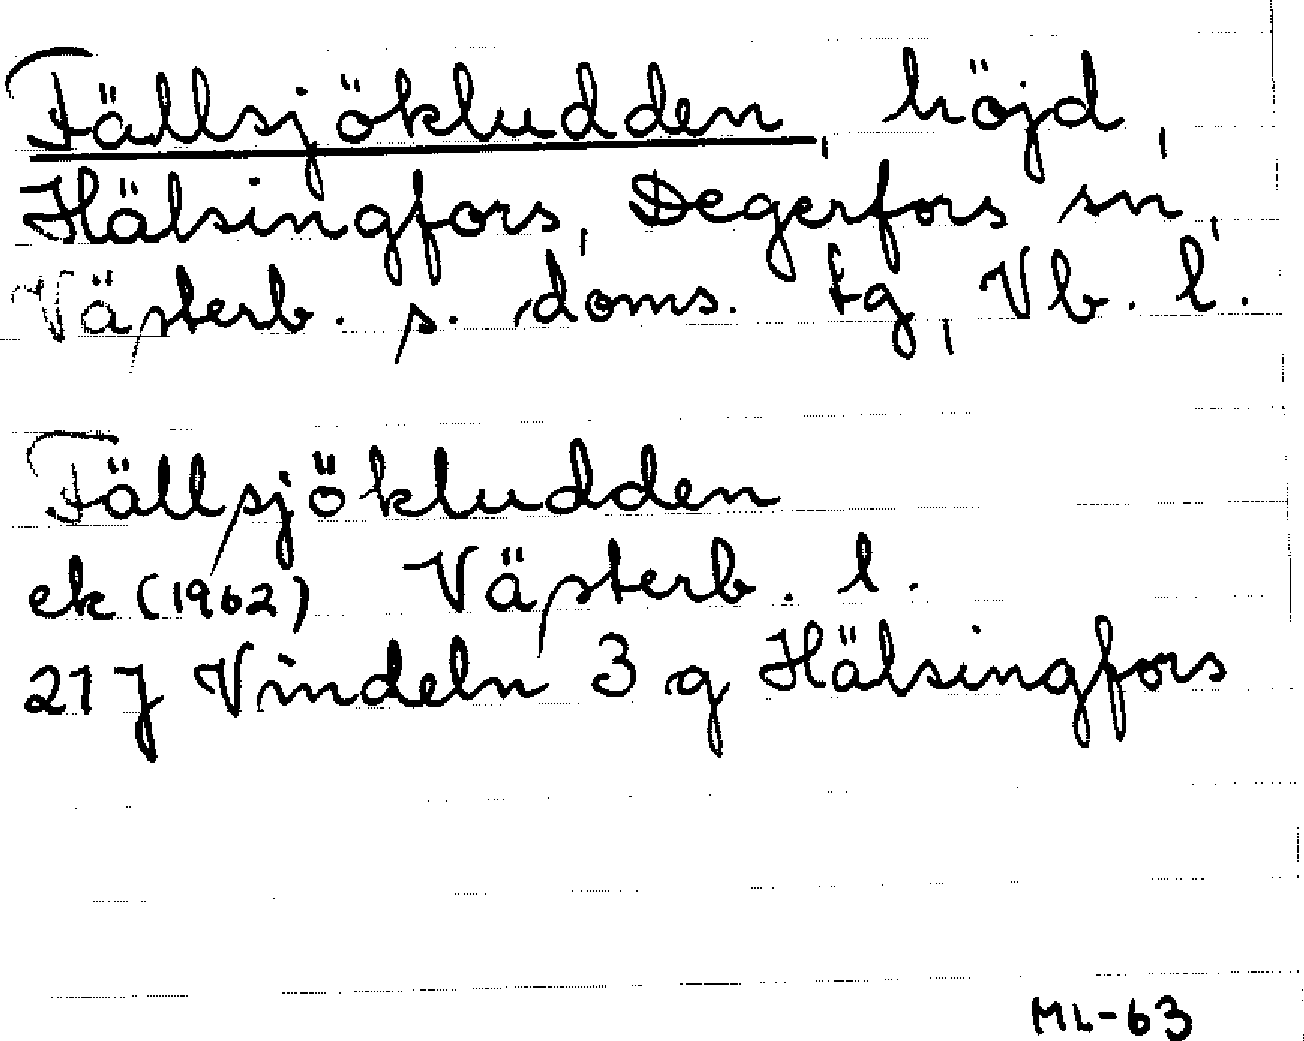 Fällsjökludden, höjd,
Hälsingfors, Degerfors sn,
Västerb. s. doms. tg, Vb. l.
Fällsjökludden
ek (1962) Västerb. l.
21 J Vindeln 3 g Hälsingfors
ML-63